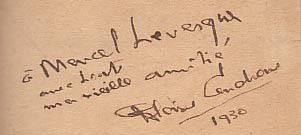 à Marcel Levesque
avec tout
ma vieille amitié,
Blaise Cendrars
1930